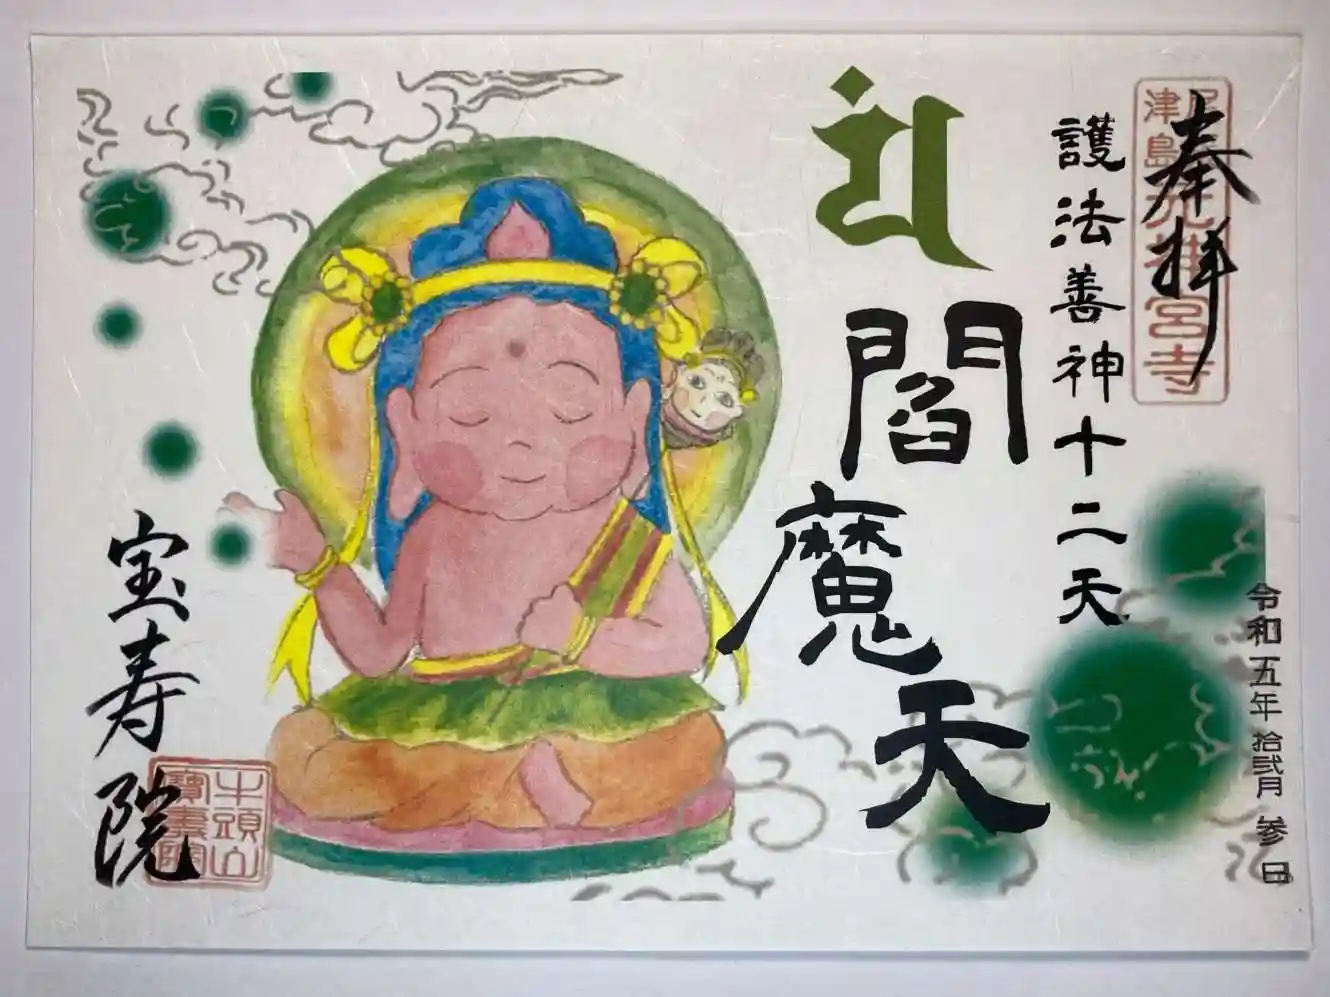 奉拝
津島
宮寺
護法善神十二天
閻魔天
令和五年拾弐月参日
宝寿院
牛頭山
寶壽院